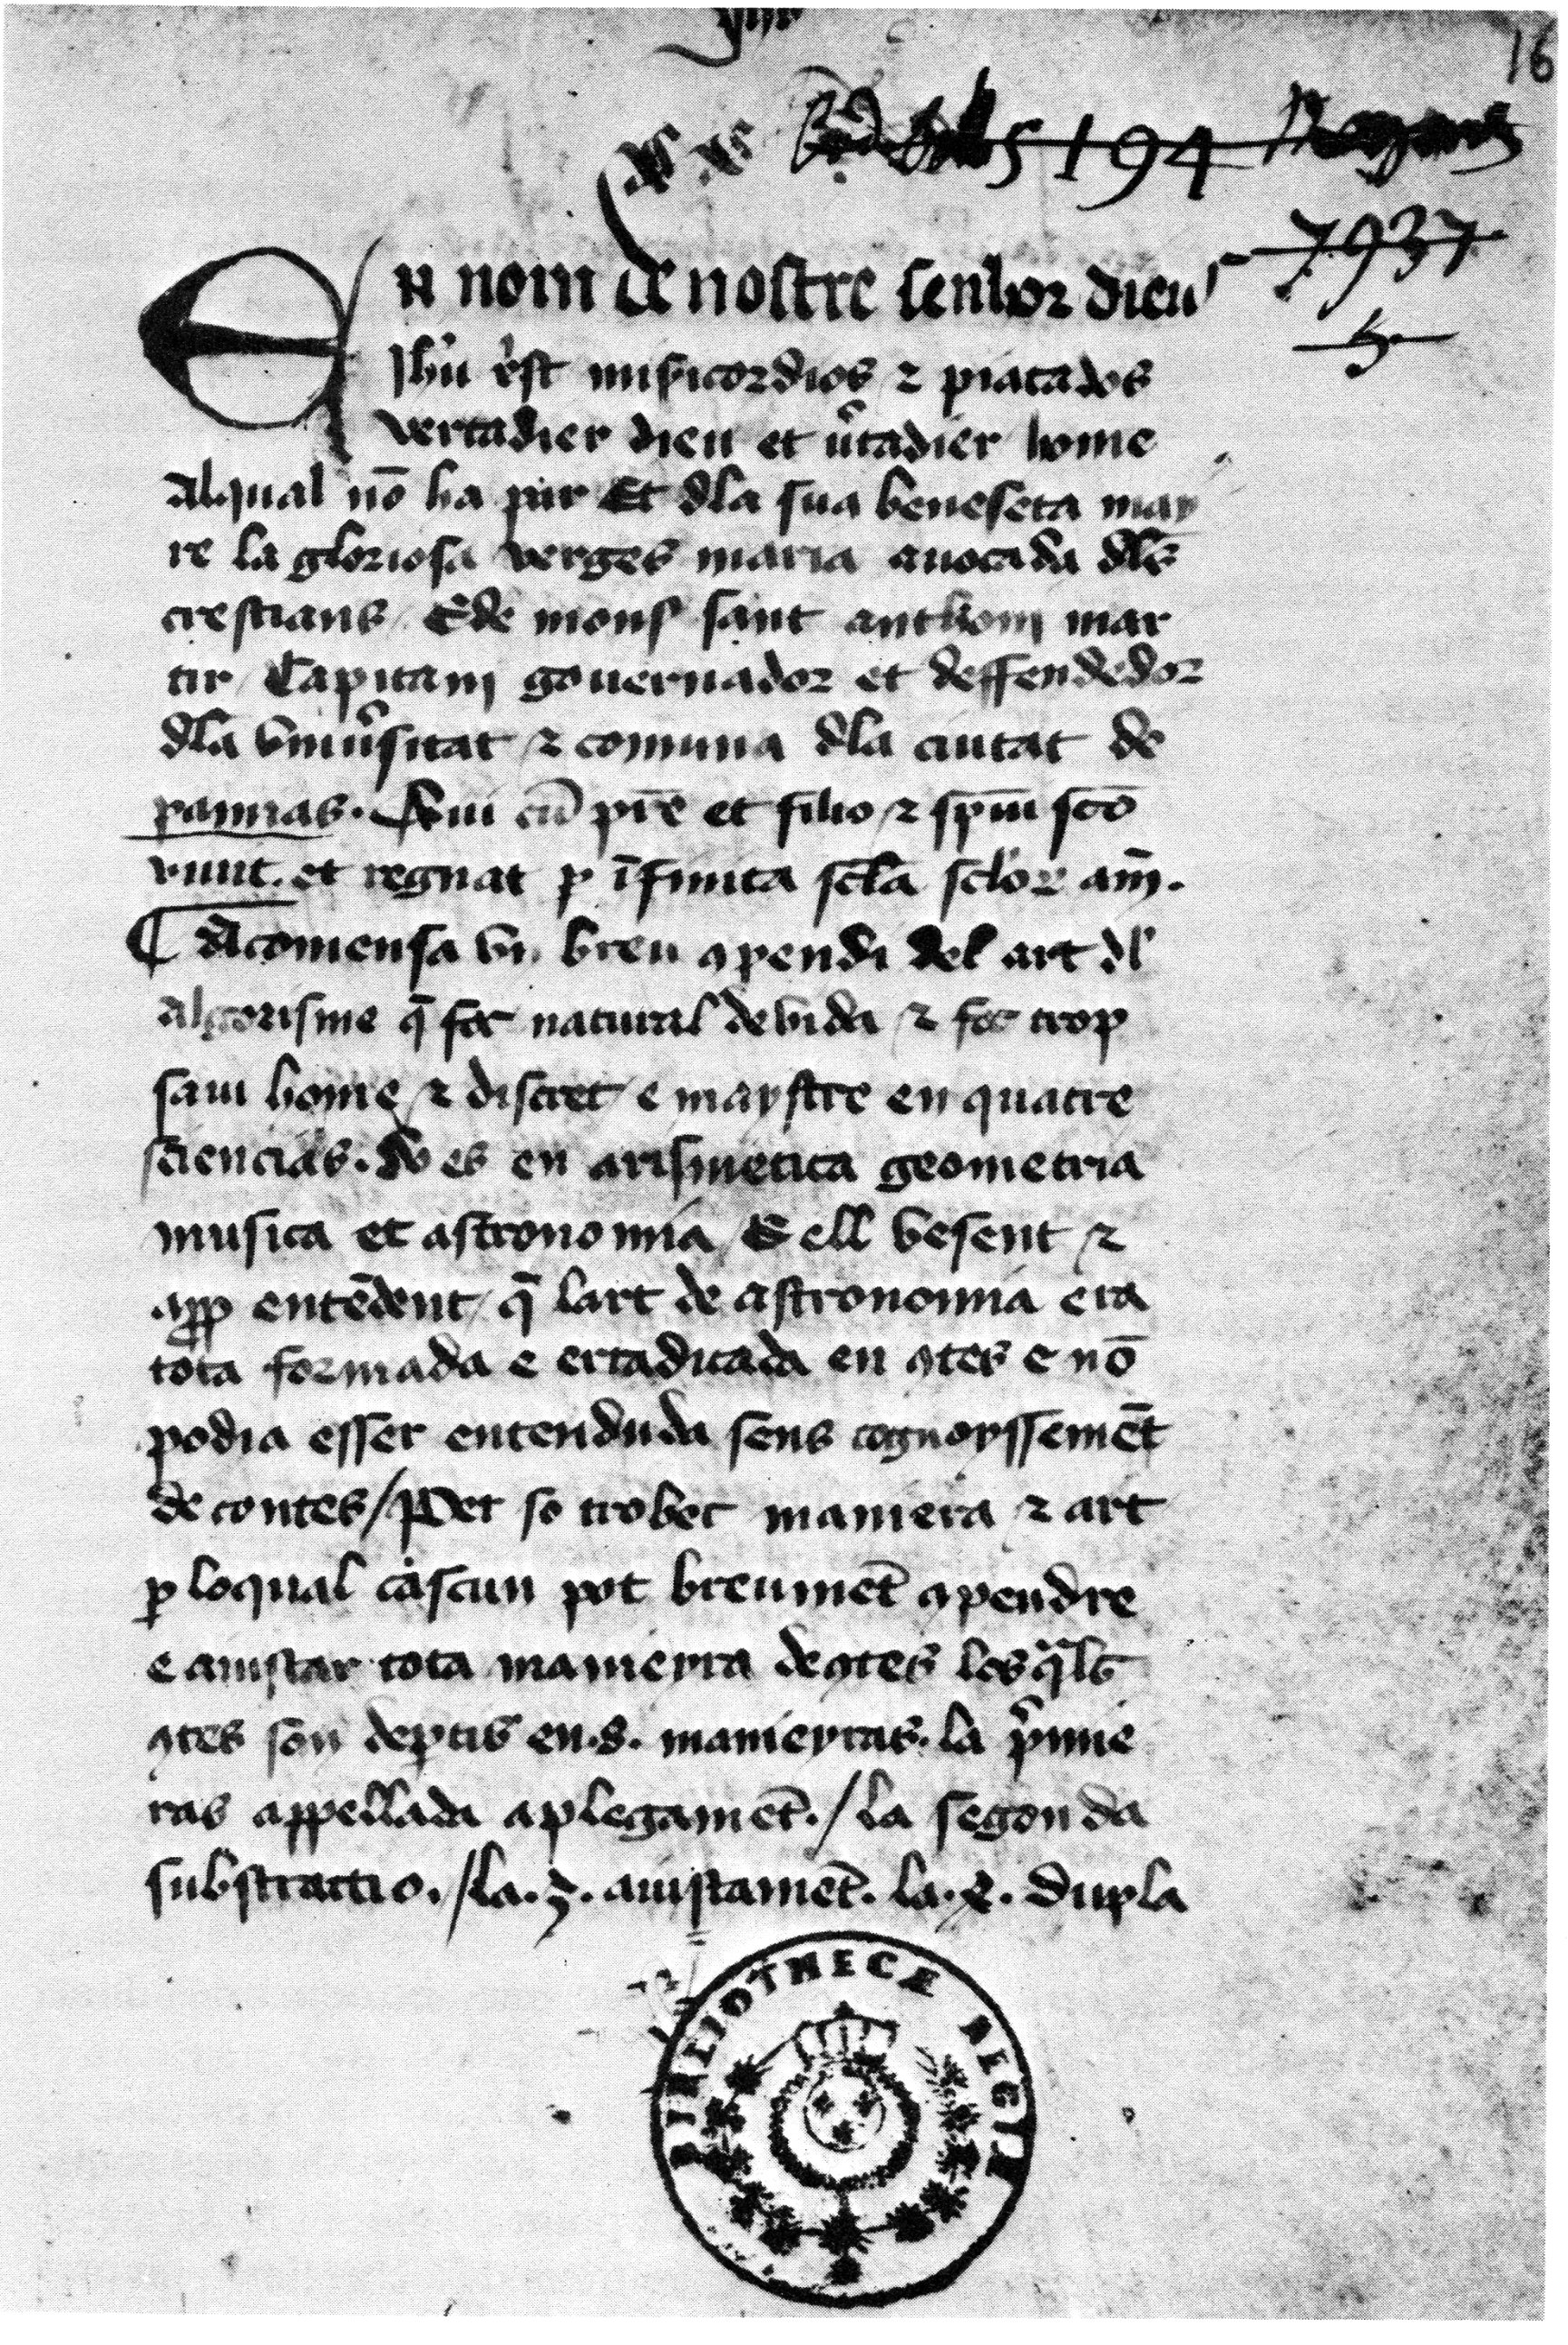 16
194
7937
5
En nom de nostre senhor dieu
Jhũ x̃st misicordios ⁊ piatados
vertadier dieu et ṽtadier home
Alqual nõ ha par Et dla sua beneseta may
re la gloriosa verges maria auocada dls
crestians / E de mons sant anthony mar
tir / Capitany gouernador et deffendedor
dla vniũsitat ⁊ comuna dla ciutat de
pamias. Qui cũ pr̃e et filio ⁊ sp̃m sc̃o
viuit et regnat p ĩfinita sc̃la sc̃lor am̃.
¶ Acomensa vn breu ꝯpendi del art dl
algorisme q̃ fec natural de vida ⁊ fec trop
saui home ⁊ discret / e maystre en quatre
sciencias. So es en arismetica geometria
musica et astronomia / E ell vesent ⁊
app entẽdent / q̃ lart de astronomia era
tota formada e erradicada en ꝯtes e nõ
podia esser entenduda sens cognoyssemẽt
de contes / Per so trobec maniera ⁊ art
p loqual cascun pot breumẽt ꝯpendre
e aiustar tota manieyra de ꝯtes les q̃ls
ꝯtes son deptis en .8. manieyras. la p̃mie
ras appellada aplegamẽt. / la segonda
substractio. / la .3. aiustamẽt. la .4. dupla
BIBLIOTHECÆ REGIÆ